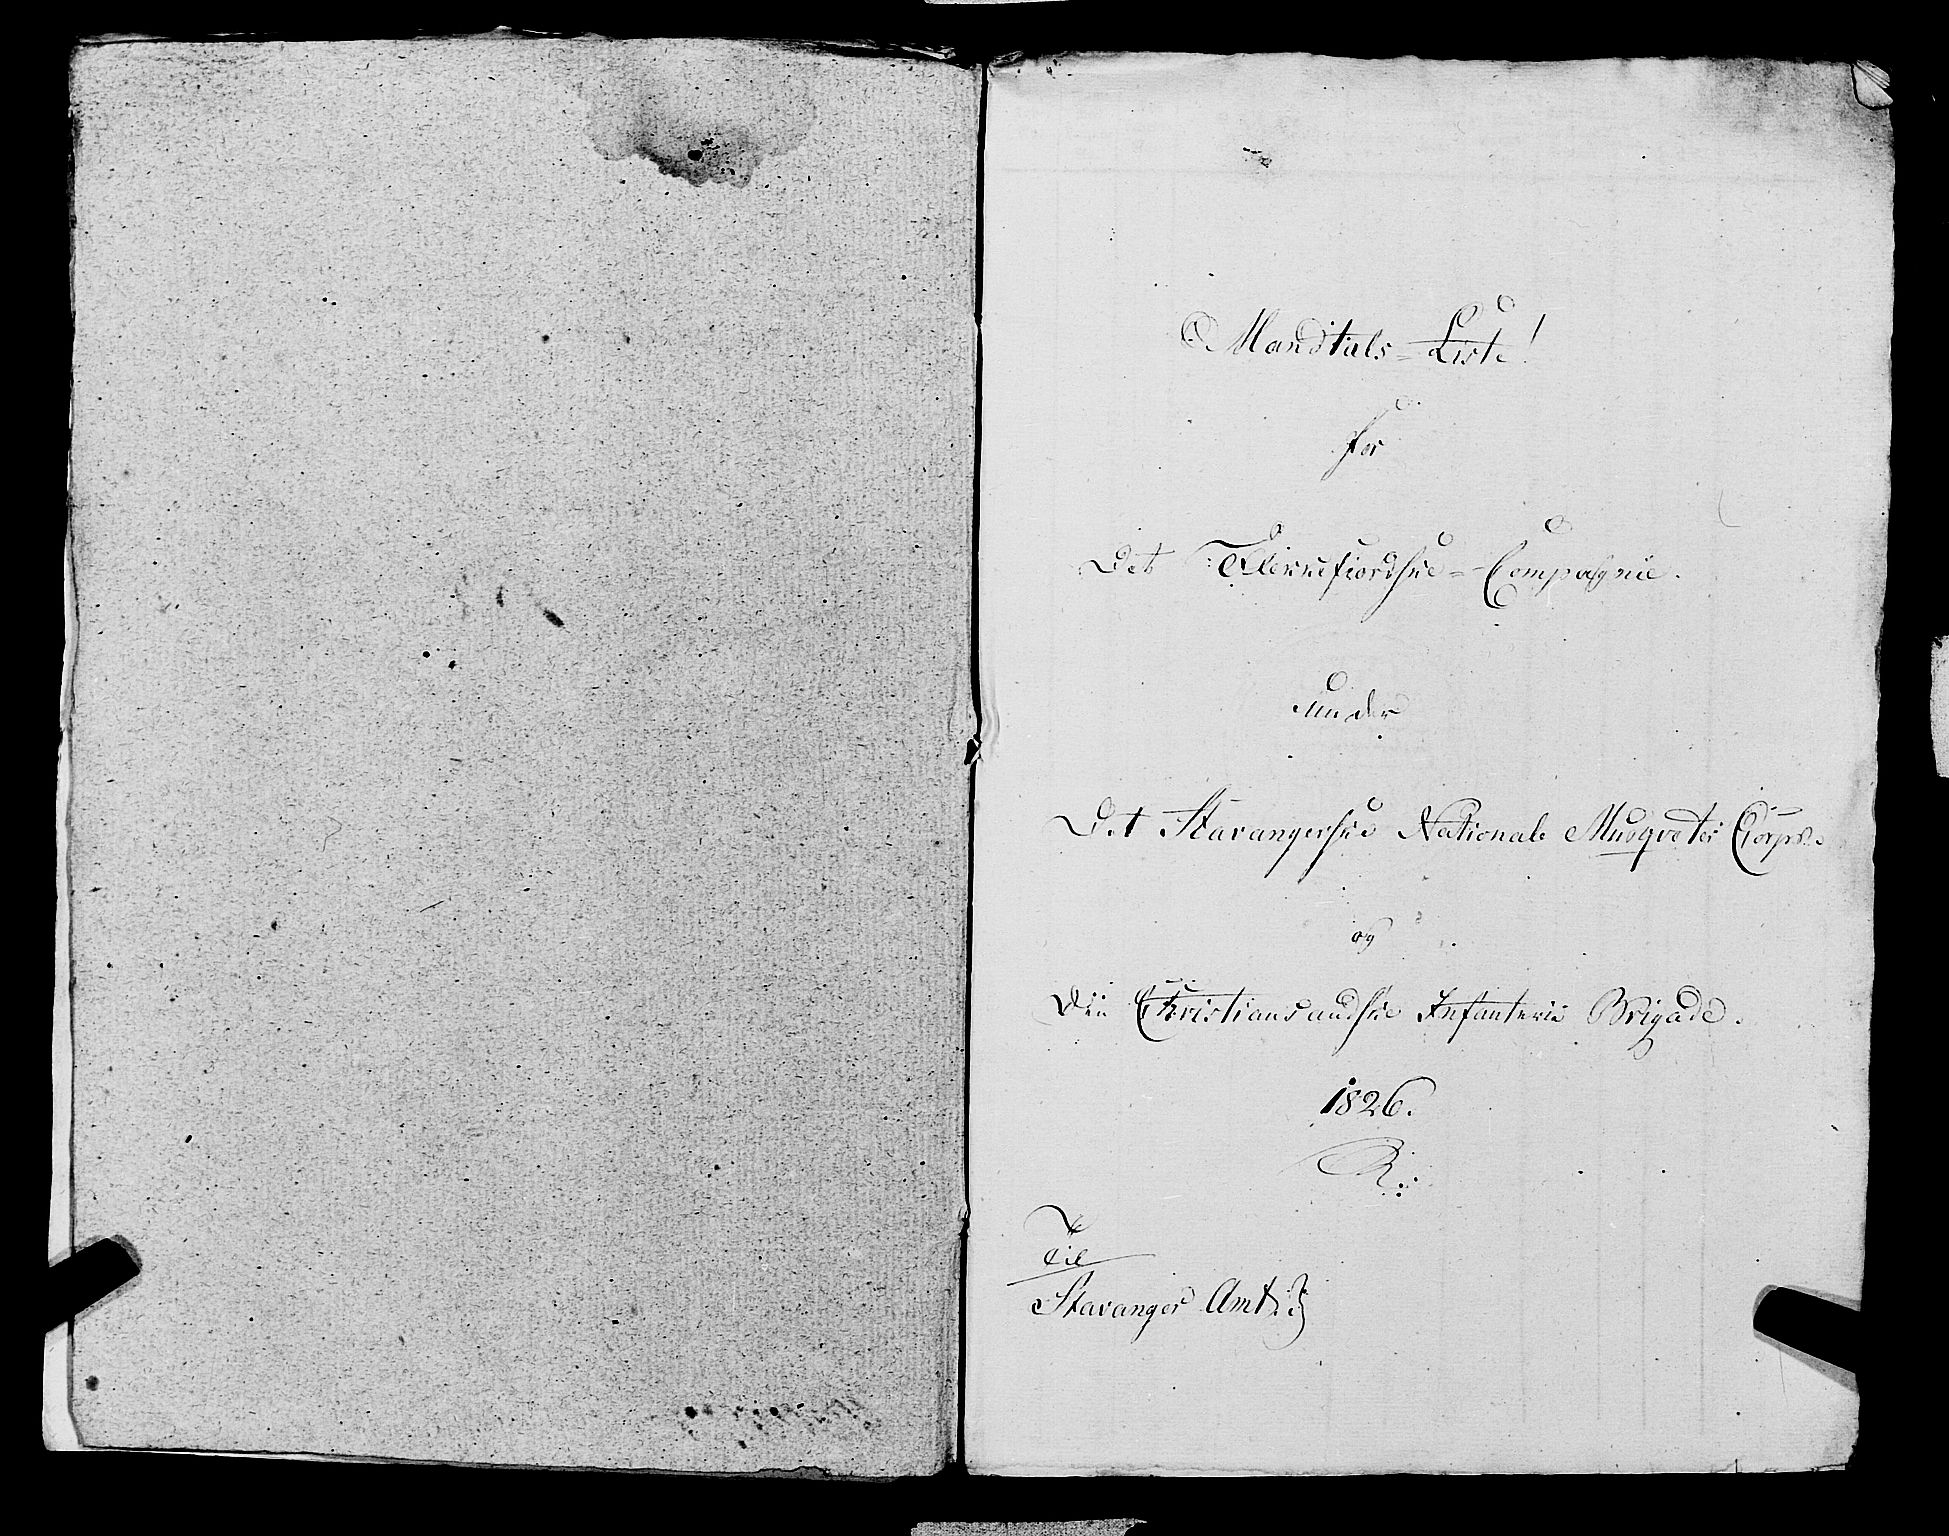 Mandtals-Liste!
for
Det Klerrefiordske-Compagnie.
under
Det Stavangerske Nationale Musqveter Corps.
og
Den Christiansandske Infanterie Brigade.
1826.
Til
Stavanger Amt.